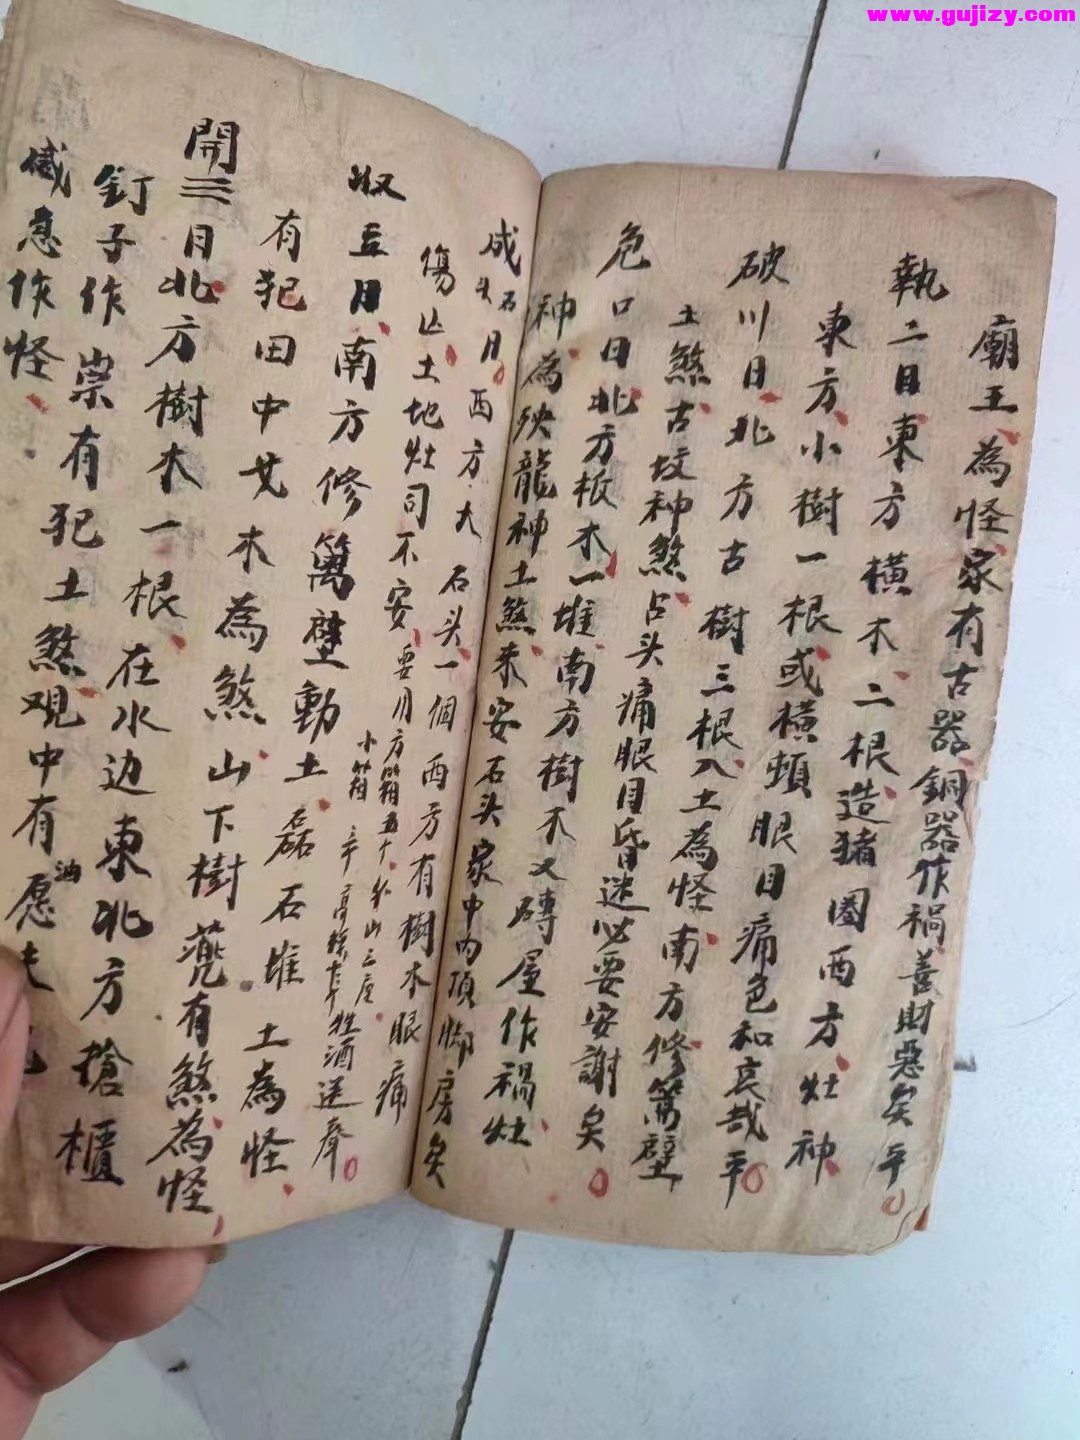 www.gujizy.com
廟王為怪家有古器銅器作禍善財惡矣平
執二日東方橫木二根造猪圈西方灶神
東方小樹一根或橫頓眼目痛色和哀哉平
破川日北方古樹三根入土為怪南方修篱壁
土煞古坟神煞占头痛眼目昏迷必要安謝矣
危口日北方板木一堆南方樹木又磚屋作禍灶
神為殃龍神土煞来安石头家中內頂脚房矣
成 日西方大石头一個西方有樹木眼痛
傷亡土地灶司不安要用方 五十 山三座牲酒送 
小
收五日南方修篱壁動土磊石堆土為怪
有犯田中艾木為煞山下樹蔸有煞為怪
開三日北方樹木一根在水边東北方搶櫃
釘子作祟有犯土煞观中有愿
感急作怪
油